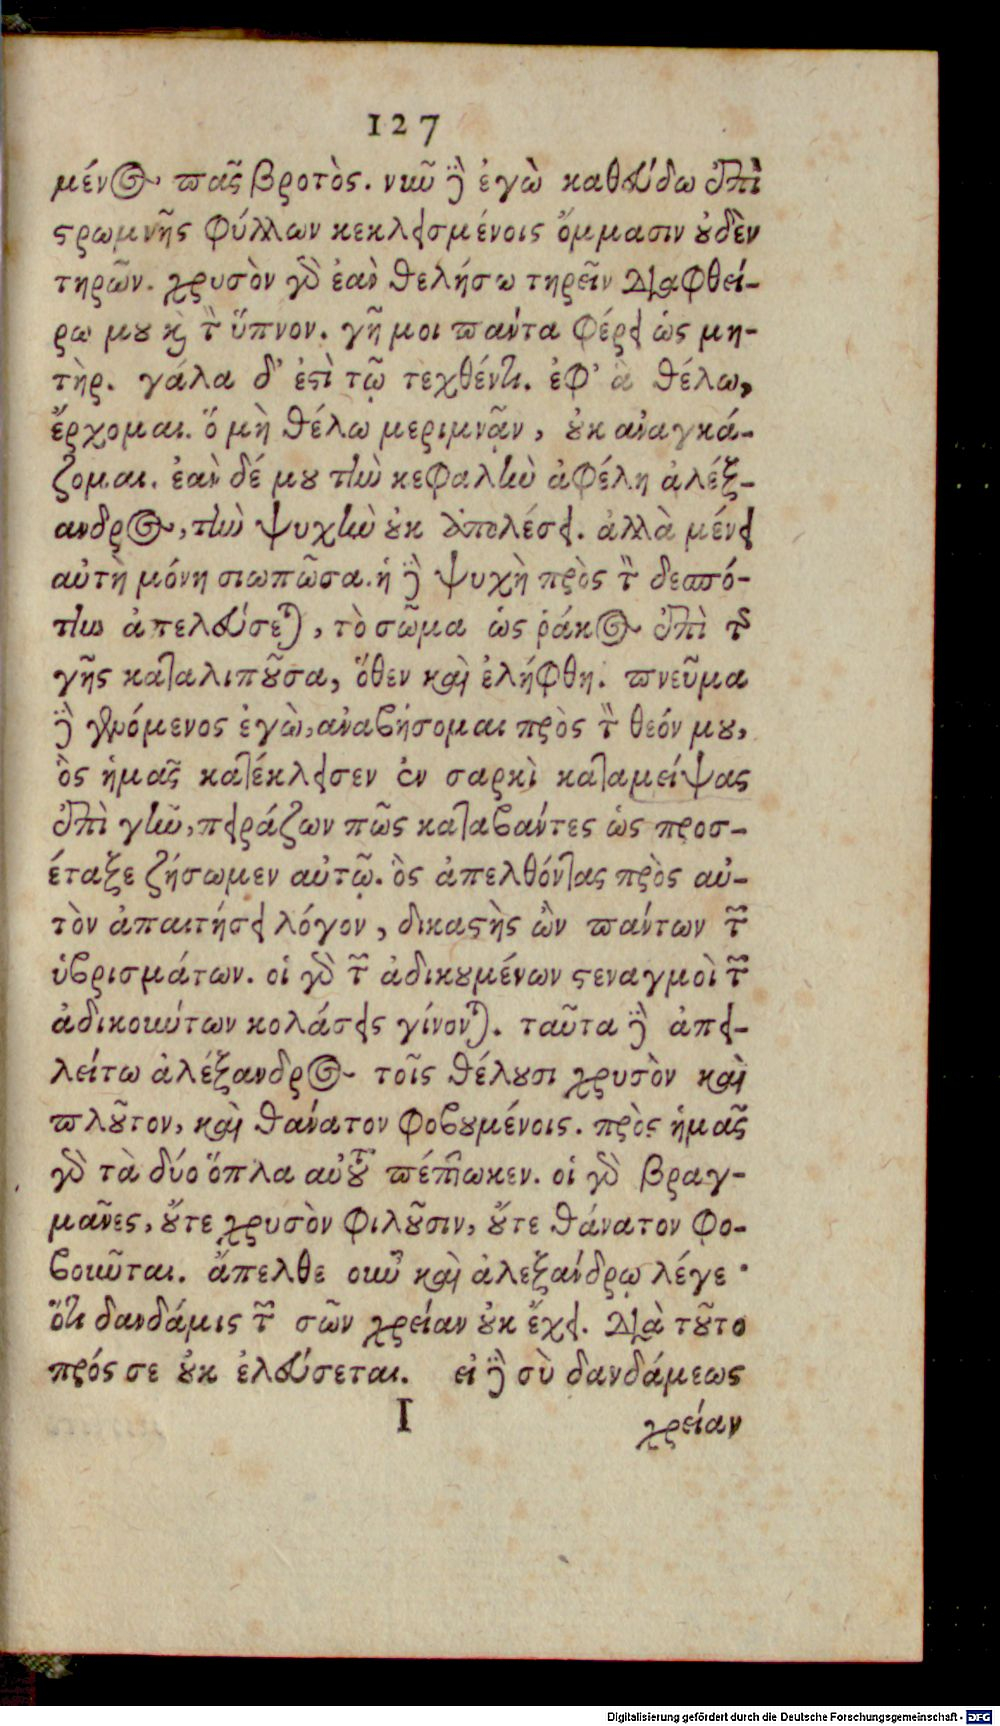 127
μένος πᾶς βροτὸς. νιῦ ἢ ἐγὼ καθεύδω ἐπὶ
στρωμνῆς φύλλων κεκλεισμένοις ὄμμασιν οὐδὲν
τηρῶν. χρυσὸν γὰρ ἐὰν θελήσω τηρεῖν διαφθεί-
ρω μου καὶ τὸν ὕπνον. γῆ μοι πάντα φέρει ὡς μη-
τὴρ. γάλα δ' ἐστὶ τῷ τεχθέντι. ἐφ' ἃ θέλω,
ἔρχομαι. ὅ μὴ θέλω μεριμνᾷν, οὐκ ἀναγκά-
ζομαι. ἐὰν δέ μου τὴν κεφαλὴν ἀφέλη ἀλέξ-
ανδρος, τὴν ψυχὴν οὐκ ἀπολέσει. ἀλλὰ μένει
αὐτὴ μόνη σιωπῶσα. ἡ δὲ ψυχὴ πρὸς τὸν δεσπό-
την ἀπελεύσεται, τὸ σῶμα ὡς ῥάκος ἐπὶ τῆς
γῆς καταλιποῦσα, ὅθεν καὶ ἐλήφθη. πνεῦμα
δὲ γενόμενος ἐγὼ, ἀναβήσομαι πρὸς τὸν θεόν μου,
ὃς ἡμᾶς κατέκλεισεν ἐν σαρκὶ καταμείψας
ἐπὶ γῆν, πειράζων πῶς καταβάντες ὡς προσ-
έταξε ζήσωμεν αὐτῷ. ὃς ἀπελθόντας πρὸς αὐ-
τὸν ἀπαιτήσει λόγον, δικαστὴς ὢν πάντων τῶν
ὑβρισμάτων. οἱ γὰρ τῶν ἀδικουμένων στεναγμοὶ τῶν
ἀδικούντων κολάσεις γίνονται. ταῦτα δὲ ἀπει-
λείτω ἀλέξανδρος τοῖς θέλουσι χρυσὸν καὶ
πλοῦτον, καὶ θάνατον φοβουμένοις. πρὸς ἡμᾶς
γὰρ τὰ δύο ὅπλα αὐτοῦ πέπτωκεν. οἱ γὰρ βραγ-
μᾶνες, οὔτε χρυσὸν φιλοῦσιν, οὔτε θάνατον φο-
βοῦνται. ἄπελθε οὖν καὶ ἀλεξάνδρῳ λέγε·
ὅτι δανδάμις τῶν σῶν χρείαν οὐκ ἔχει. διὰ τοῦτο
πρός σε οὐκ ἐλεύσεται. εἰ δὲ σὺ δανδάμεως
I
χρείαν
Digitalisierung gefördert durch die Deutsche Forschungsgemeinschaft - DFG